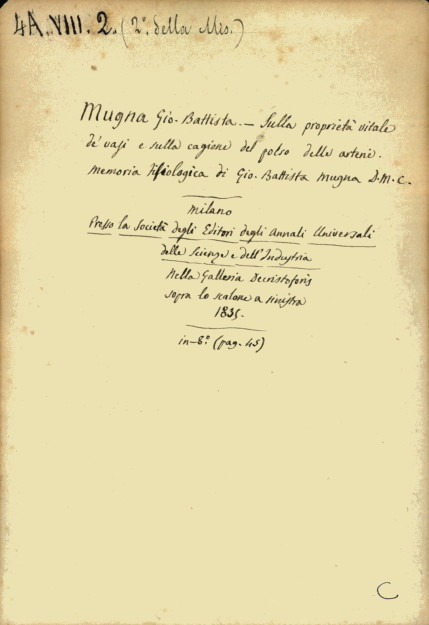 4A.VIII.2. (2.° della Mis.)
Mugna Gio. Battista. — Sulla proprietà vitale
de' vasi e sulla cagione del polso delle arterie.
Memoria Fisiologica di Gio. Battista Mugna D.M.C.
Milano
Presso la Società degli Editori degli Annali Universali
delle Scienze e dell'Industria
Nella Galleria Decristoforis
sopra lo scalone a sinistra
1835.
in-8.° (pag. 45)
C